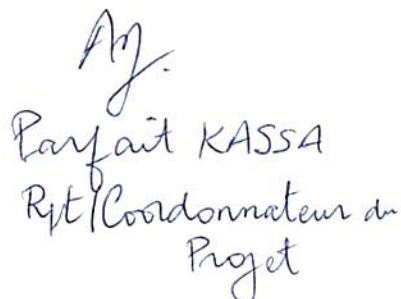 Parfait KASSA
Rpt/Coordonnateur du
Projet